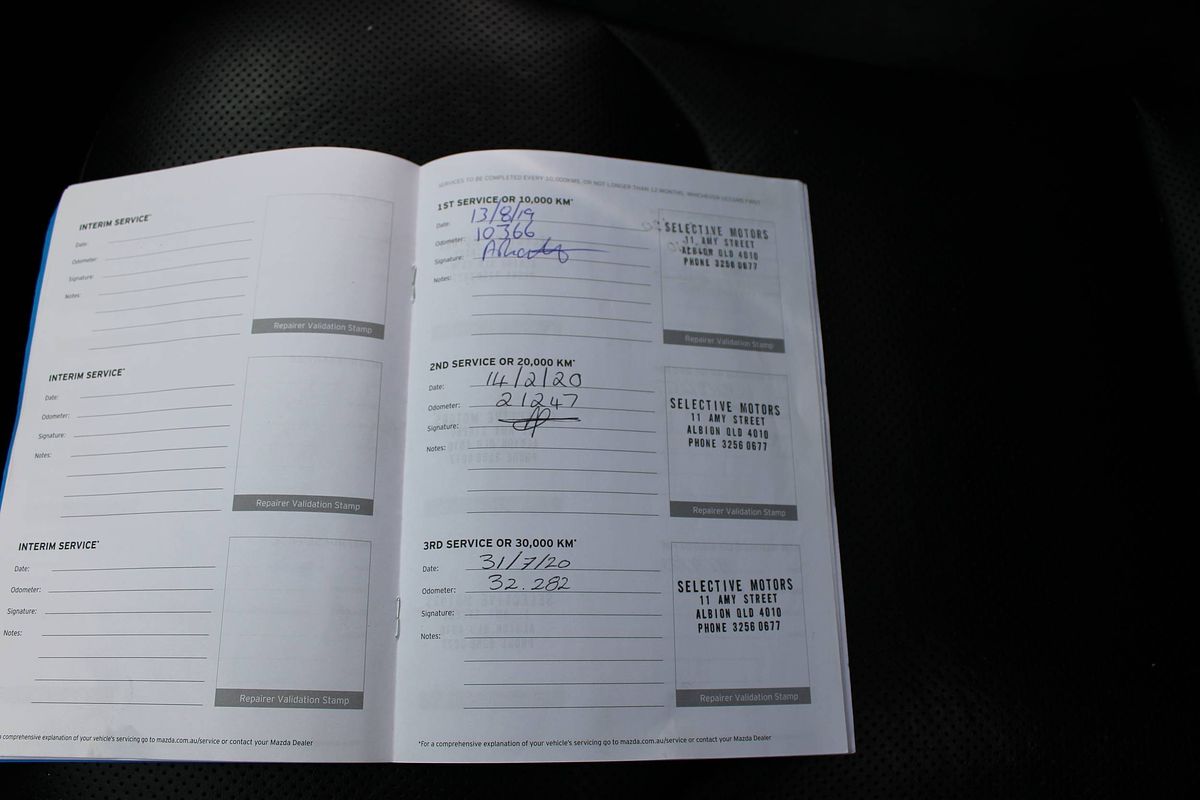 INTERIM SERVICE*
Date:
Odometer:
Signature:
Notes:
Repairer Validation Stamp
INTERIM SERVICE*
Date:
Odometer:
Signature:
Notes:
Repairer Validation Stamp
INTERIM SERVICE*
Date:
Odometer:
Signature:
Notes:
Repairer Validation Stamp
comprehensive explanation of your vehicle's servicing go to mazda.com.au/service or contact your Mazda Dealer
SERVICES TO BE COMPLETED EVERY 10,000KMS, OR NOT LONGER THAN 12 MONTHS, WHICHEVER OCCURS FIRST
1ST SERVICE OR 10,000 KM*
Date: 13/8/19
Odometer: 10366
Signature:
Notes:
SELECTIVE MOTORS
11 AMY STREET
ALBION QLD 4010
PHONE 3256 0677
Repairer Validation Stamp
2ND SERVICE OR 20,000 KM*
Date: 14/2/20
Odometer: 21247
Signature:
Notes:
SELECTIVE MOTORS
11 AMY STREET
ALBION QLD 4010
PHONE 3256 0677
Repairer Validation Stamp
3RD SERVICE OR 30,000 KM*
Date: 31/7/20
Odometer: 32.282
Signature:
Notes:
SELECTIVE MOTORS
11 AMY STREET
ALBION QLD 4010
PHONE 3256 0677
Repairer Validation Stamp
*For a comprehensive explanation of your vehicle's servicing go to mazda.com.au/service or contact your Mazda Dealer